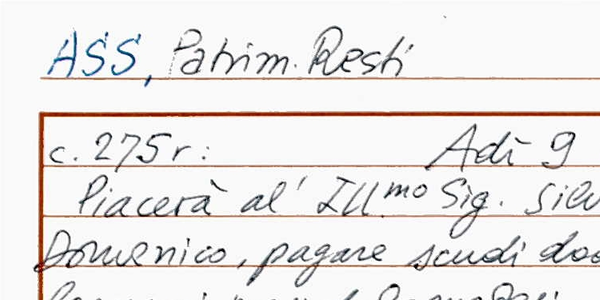 ASS, Patrim. Resti
c. 275 r: Adì 9
Piacerà al' Ill.mo Sig.
Domenico, pagare scudi